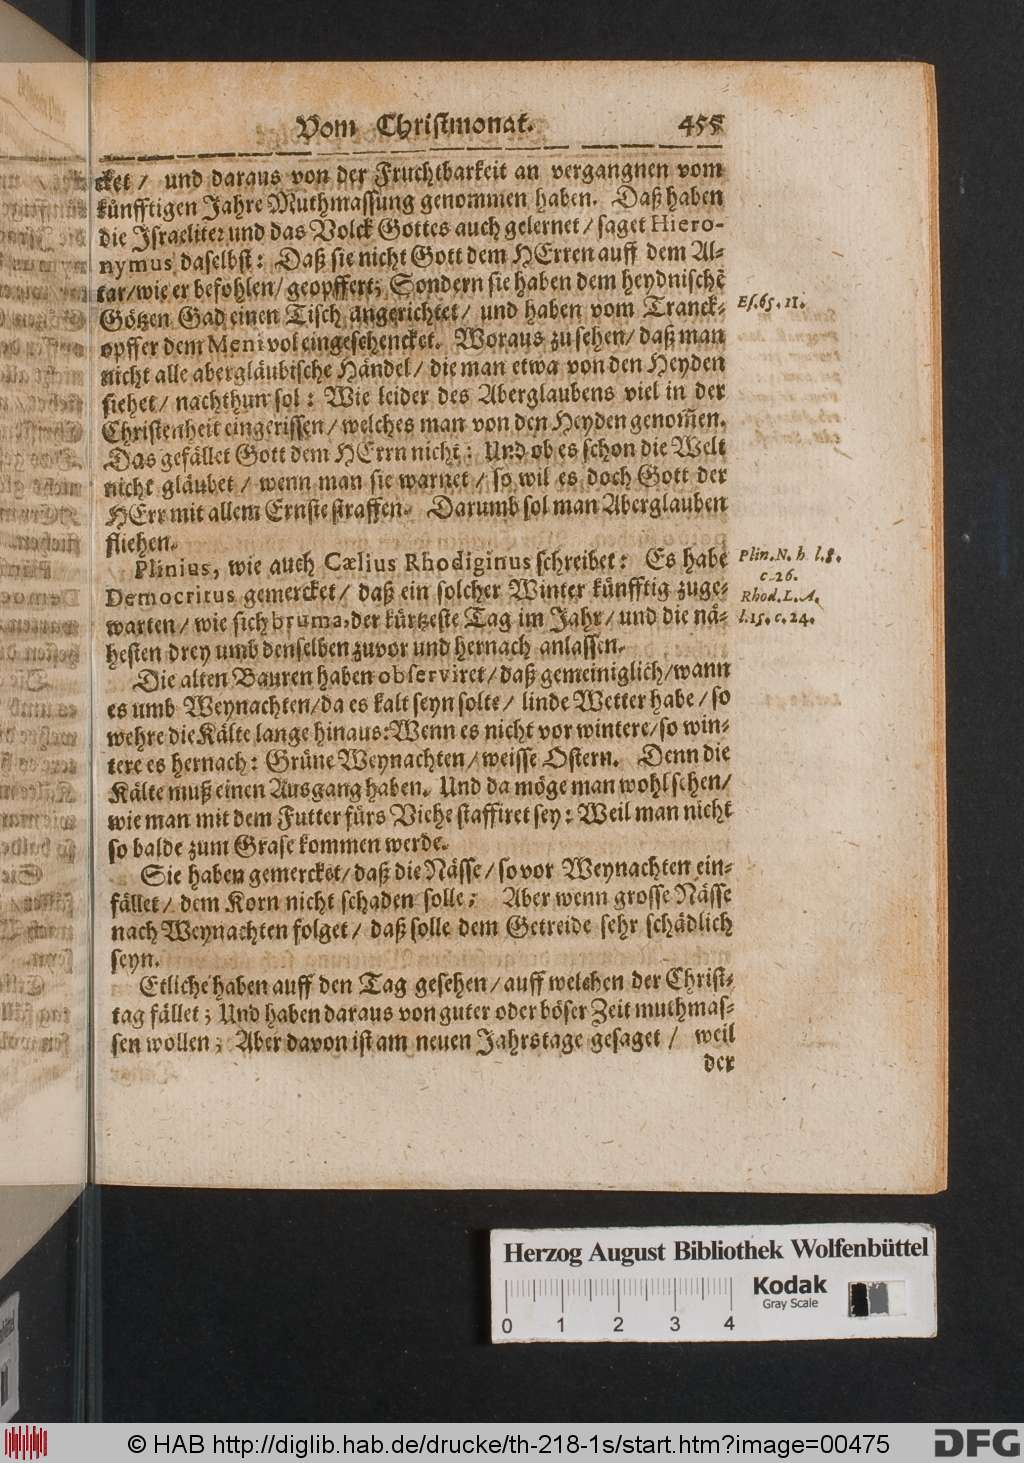 Vom Christmonat. 455
cket / und daraus von der Fruchtbarkeit an vergangnen vom
künfftigen Jahre Muthmassung genommen haben. Daß haben
die Israeliter und das Volck Gottes auch gelernet / saget Hiero-
nymus daselbst: Daß sie nicht Gott dem HErren auff dem Al-
tar/wie er befohlen/geopffert; Sondern sie haben dem heydnischē
Götzen Gad einen Tisch angerichtet / und haben vom Tranck-
opffer dem Meni vol eingeschencket. Woraus zu sehen / daß man
nicht alle abergläubische Händel / die man etwa von den Heyden
siehet / nachthun sol: Wie leider des Aberglaubens viel in der
Christenheit eingerissen / welches man von den Heyden genom̄en.
Das gefället Gott dem HErrn nicht: Und ob es schon die Welt
nicht gläubet / wenn man sie warnet / so wil es doch Gott der
HErr mit allem Ernste straffen. Darumb sol man Aberglauben
fliehen.
Es. 65. 11.
Plinius, wie auch Cælius Rhodiginus schreibet: Es habe
Democritus gemercket / daß ein solcher Winter künfftig zuge-
warten / wie sich bruma, der kürtzeste Tag im Jahr / und die nä-
hesten drey umb denselben zuvor und hernach anlassen.
Plin. N. h l. 8.
c. 26.
Rhod. L. A.
l. 15. c. 24.
Die alten Bauren haben observiret / daß gemeiniglich / wann
es umb Weynachten / da es kalt seyn solte / linde Wetter habe / so
wehre die Kälte lange hinaus: Wenn es nicht vor wintere / so win-
tere es hernach: Grüne Weynachten / weisse Ostern. Denn die
Kälte muß einen Ausgang haben. Und da möge man wohl sehen /
wie man mit dem Futter fürs Viehe staffiret sey: Weil man nicht
so balde zum Grase kommen werde.
Sie haben gemercket / daß die Nässe / so vor Weynachten ein-
fället / dem Korn nicht schaden solle; Aber wenn grosse Nässe
nach Weynachten folget / daß solle dem Getreide sehr schädlich
seyn.
Etliche haben auff den Tag gesehen / auff welchen der Christ-
tag fället; Und haben daraus von guter oder böser Zeit muthmas-
sen wollen; Aber davon ist am neuen Jahrstage gesaget / weil
der
Herzog August Bibliothek Wolfenbüttel
Kodak
Gray Scale
0 1 2 3 4
© HAB http://diglib.hab.de/drucke/th-218-1s/start.htm?image=00475
DFG